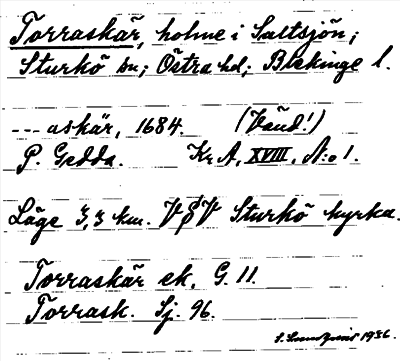 Torraskär, holme i Saltsjön;
Sturkö sn; Östra hd; Blekinge l.
--- askär, 1684. (Vänd!)
P. Gedda. Kr A, XVIII, N:o 1.
Läge 3,3 km. VSV Sturkö kyrka.
Torraskär ek. G. 11.
Torrask. Sj. 96.
1936.